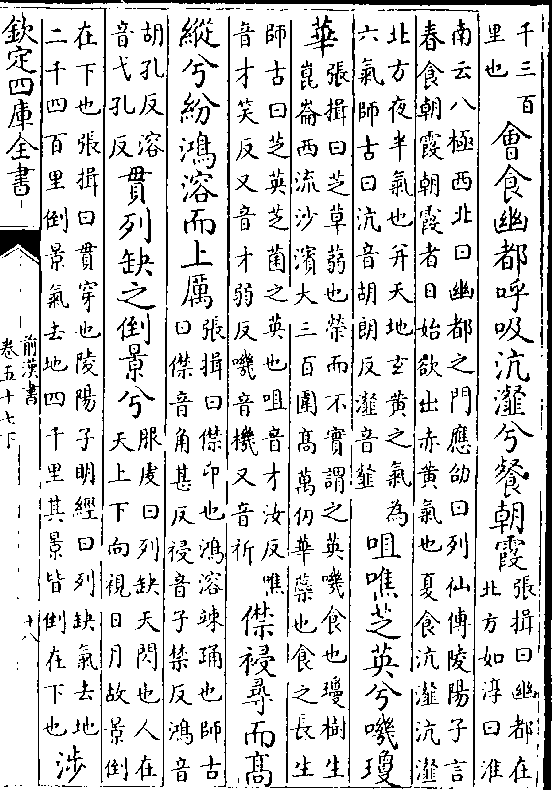 千三百
里也
會食幽都呼吸沆瀣兮餐朝霞
張揖曰幽都在
北方如淳曰淮
南云八極西北曰幽都之門應劭曰列仙傳陵陽子言
春食朝霞朝霞者日始欲出赤黄氣也夏食沆瀣沆瀣
北方夜半氣也并天地玄黄之氣為
六氣師古曰沆音胡朗反瀣音韰
咀噍芝英兮嘰瓊
華
張揖曰芝草蒻也榮而不實謂之英嘰食也瓊樹生
崑崙西流沙濱大三百圍髙萬仞華蘂也食之長生
師古曰芝英芝菌之英也咀音才汝反噍
音才笑反又音才弱反嘰音機又音祈
傑祲尋而髙
縱兮紛鴻溶而上厲
張揖曰傑卬也鴻溶竦踊也師古
曰傑音角甚反祲音子禁反鴻音
胡孔反溶
音弋孔反
貫列缺之倒景兮
服虔曰列缺天閃也人在
天上下向視日月故景倒
在下也張揖曰貫穿也陵陽子明經曰列缺氣去地
二千四百里倒景氣去地四千里其景皆倒在下也
涉
欽定四庫全書
前漢書
卷五十七下
十八